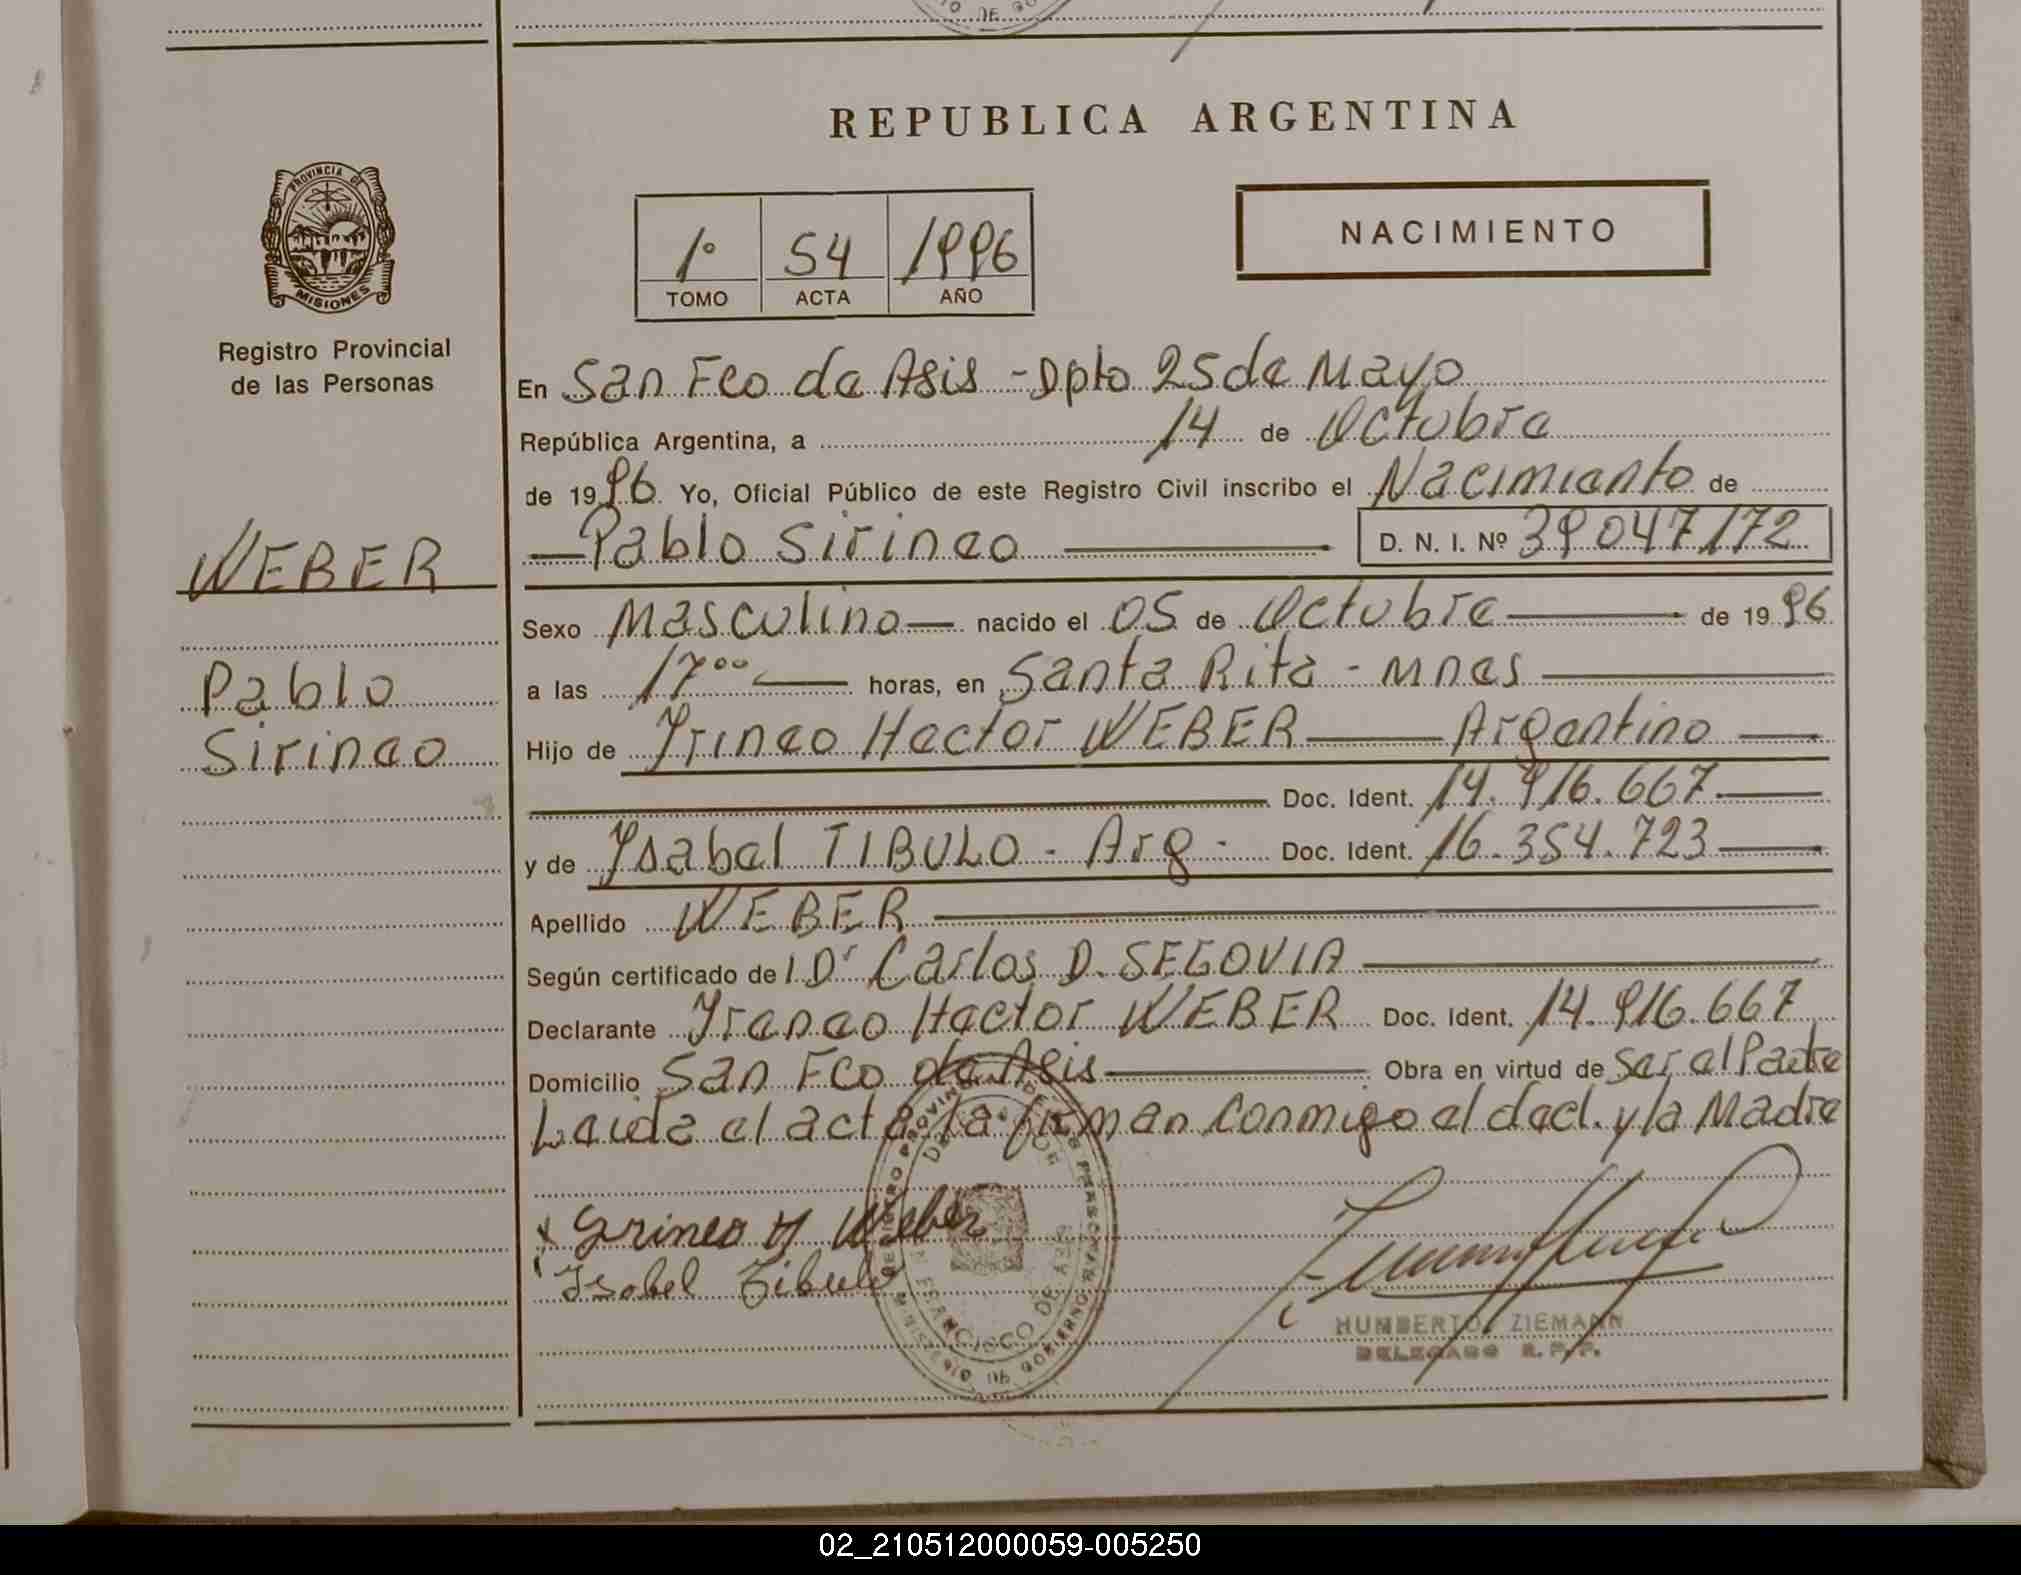 REPUBLICA ARGENTINA
PROVINCIA DE
MISIONES
Registro Provincial
de las Personas
1º 54 1996
TOMO ACTA AÑO
NACIMIENTO
WEBER
Pablo
Sirineo
En San Fco de Asis - Dpto 25 de Mayo
República Argentina, a 14 de Octubre
de 1996 Yo, Oficial Público de este Registro Civil inscribo el Nacimiento de
Pablo Sirineo D. N. I. Nº 39047172
Sexo Masculino nacido el 05 de Octubre de 1996
a las 17⁰⁰ horas, en Santa Rita - Mnes
Hijo de Yrineo Hector WEBER Argentino
Doc. Ident. 14.916.667
y de Ysabel TIBULO - Arg - Doc. Ident. 16.354.723
Apellido WEBER
Según certificado de l Dr Carlos D. SEGOVIA
Declarante Yreneo Hector WEBER Doc. Ident. 14.916.667
Domicilio San Fco de Asis Obra en virtud de ser el Padre
Leida el acta la firman conmigo el decl. y la Madre
x Yrineo H Weber
Ysabel Tibulo
HUMBERTO ZIEMANN
DELEGADO R. P. P.
02_210512000059-005250